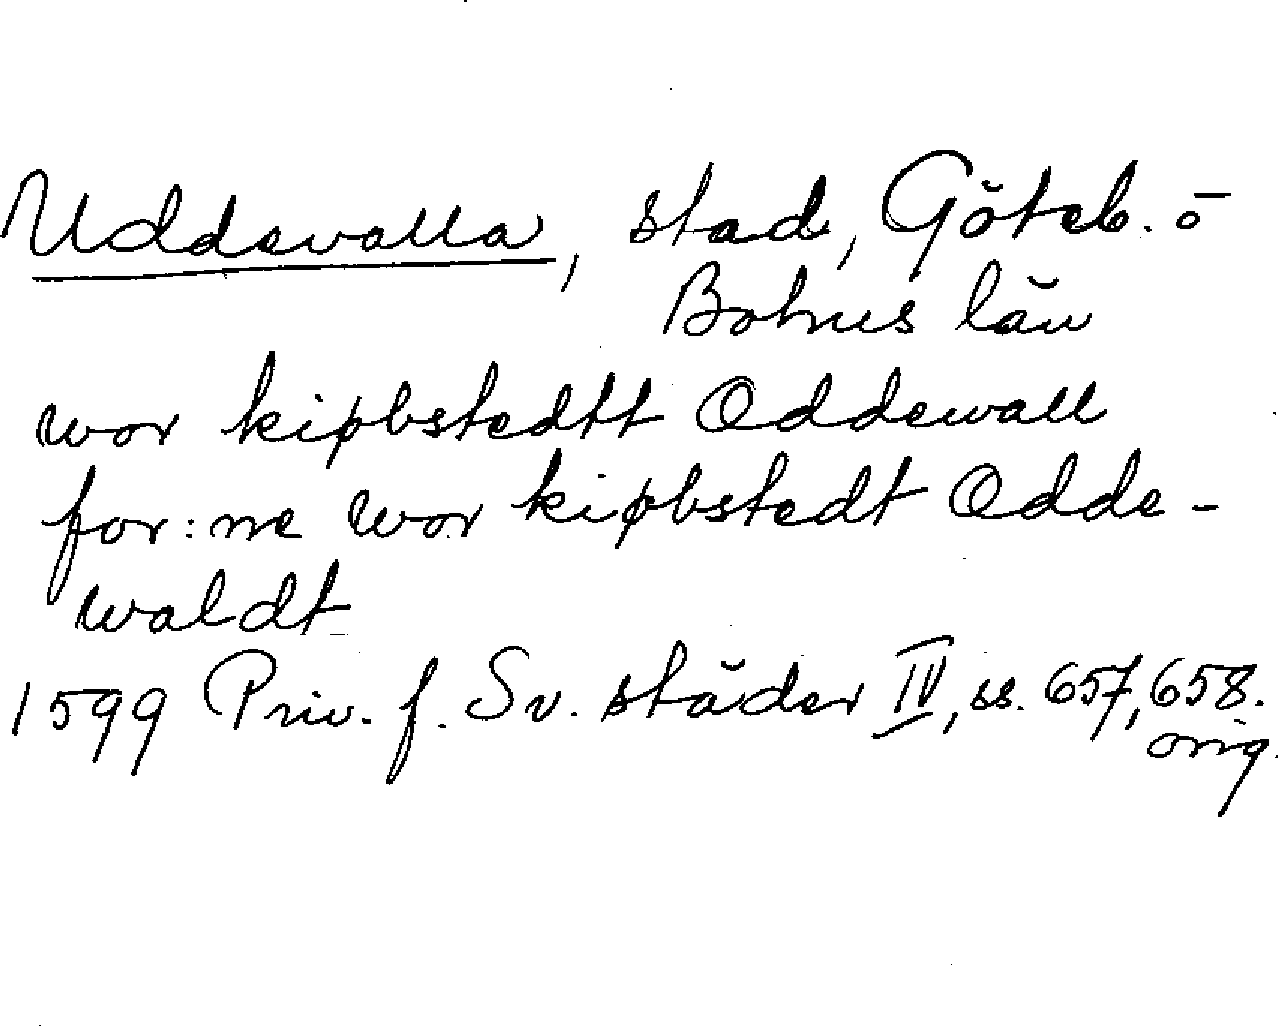 Uddevalla, stad, Göteb. o
Bohus län
wor kiøbstedtt Oddewall
for: ne wor kiøbstedt Odde-
waldt
1599 Priv. f. Sv. städer IV, ss. 657, 658.
orig.